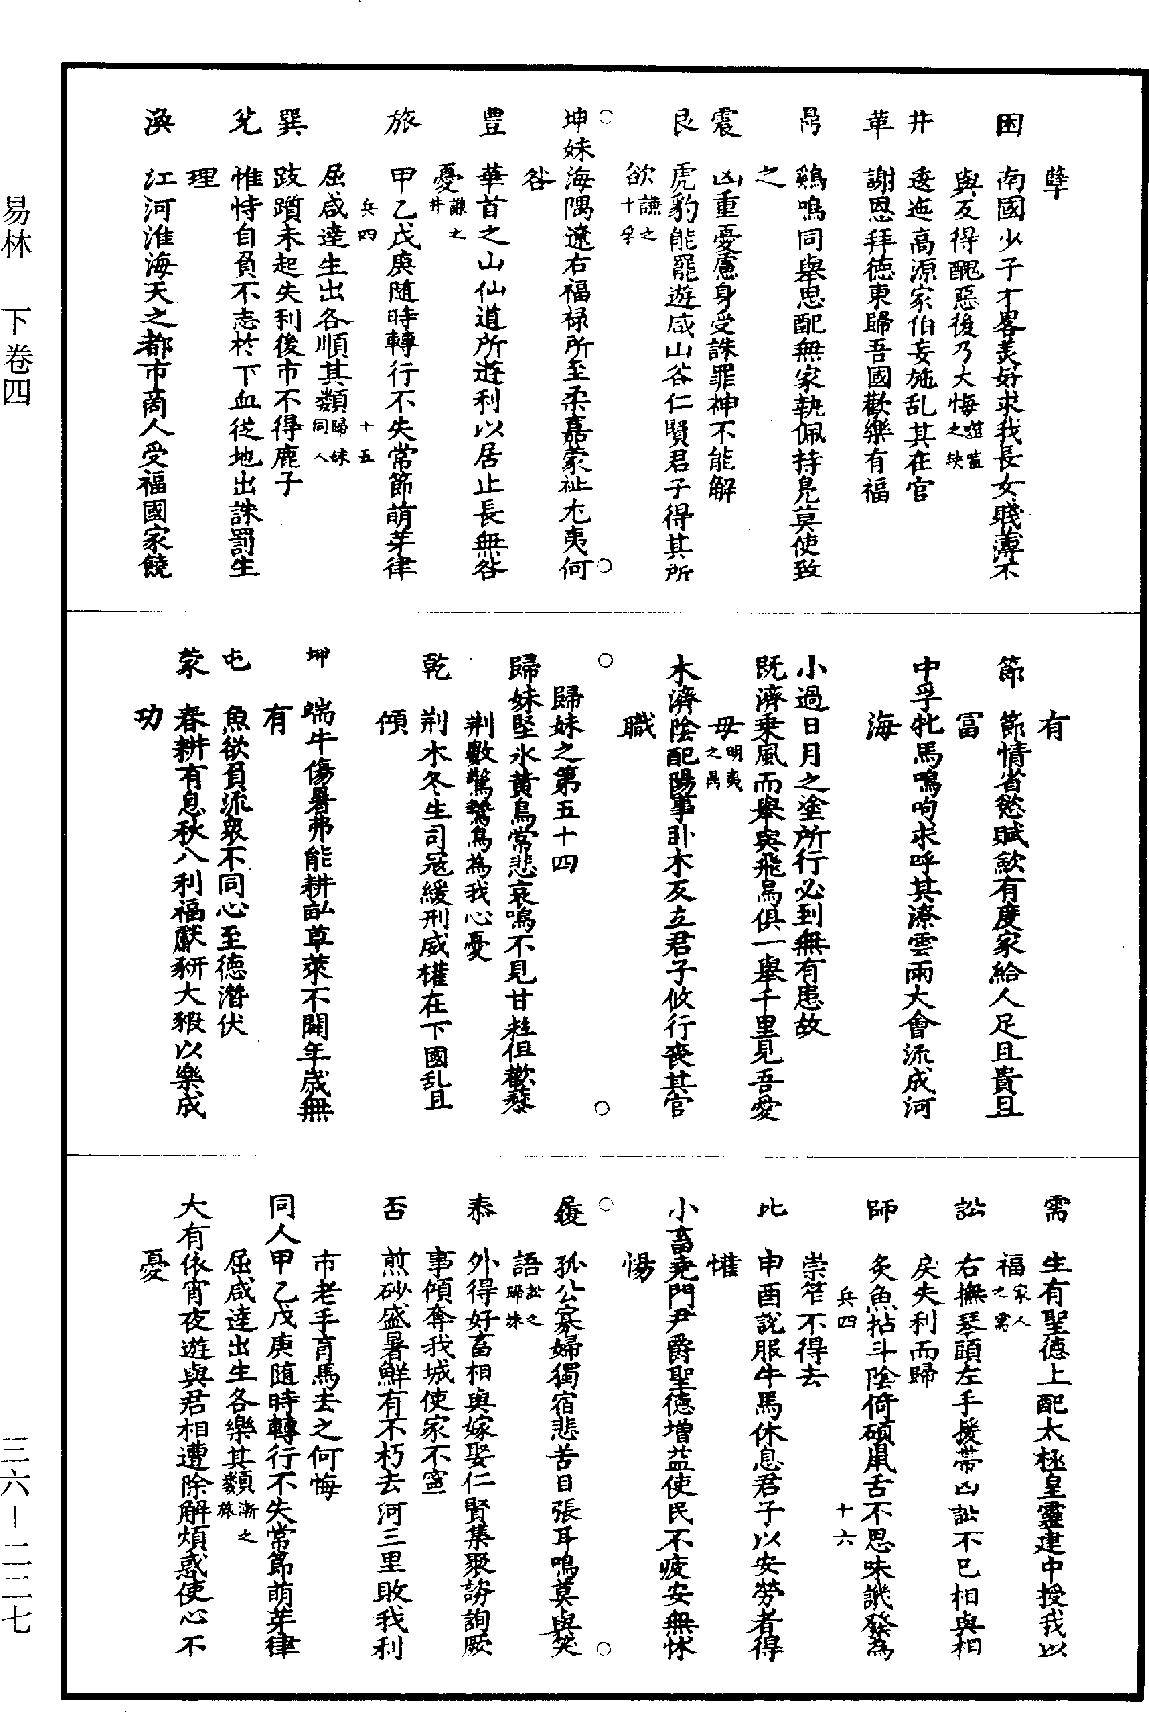 孽
困　南國少子才畧美好求我長女賤薄不
與反得醜惡後乃大悔噬嗑之缺
井　逶迤高源家伯妄施乱其在官
革　謝恩拜德東歸吾國歡樂有福
鼎　鷄鳴同舉思配無家執佩持鳧莫使致
之
震　凶重憂慮身受誅罪神不能解
艮　虎豹能羆遊戍山谷仁賢君子得其所
欲謙之十孚
坤妹海隅遼右福禄所至柔嘉蒙祉尤夷何
咎
豊　華首之山仙道所遊利以居止長無咎
憂謙之井
旅　甲乙戊庚随時轉行不失常節萌芽律
兵四　十五
屈咸達生出各順其類歸妹同人
巽　跂躓未起失利後市不得鹿子
兊　惟恃自負不志於下血從地出誅罰生
理
渙　江河淮海天之都市啇人受福國家饒
有
節　節情省慾賦歛有度家給人足且貴且
富
中孚牝馬鳴呴求呼其潦雲雨大會流成河
海
小過日月之塗所行必到無有患故
既濟乗風而舉與飛鳥俱一舉千里見吾愛
母明夷之晨
木濟陰配陽事卧木反立君子攸行喪其官
職
歸妹之第五十四
歸妹堅氷黄鳥常悲哀鳴不見甘粒但歡藜
荆數驚鷙鳥為我心憂
乾　荆木冬生司冦緩刑威權在下國乱且
傾
坤　喘牛傷暑弗能耕畝草萊不闢年歲無
有
屯　魚欲負流衆不同心至德潛伏
蒙　春耕有息秋入利福獻豜大豵以樂成
功
需　生有聖德上配太極皇靈建中授我以
福家人之需
訟　右撫琴頭左手援帶凶訟不已相與相
戾失利而歸
師　炙魚拈斗陰倚碩鼠舌不思味譏發為
兵四　十六
祟笮不得去
比　申酉說服牛馬休息君子以安勞者得
懽
小畜堯門尹爵聖德增益使民不疲安無怵
惕
履　孤公寡婦獨宿悲苦目張耳鳴莫與笑
語訟之歸妹
泰　外得好畜相與嫁娶仁賢集聚諮詢厥
事傾奪我城使家不寧
否　煎砂盛暑鮮有不朽去河三里敗我利
市老手育馬去之何悔
同人甲乙戊庚随時轉行不失常節萌芽律
屈咸達出生各樂其類漸之旅
大有依宵夜遊與君相遭除解煩惑使心不
憂
易林　下卷四
三六－二二七